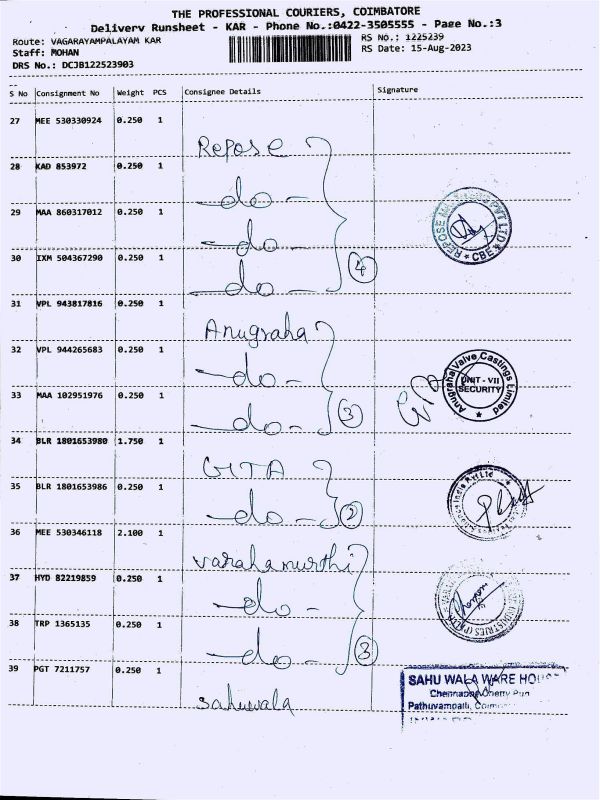 THE PROFESSIONAL COURIERS, COIMBATORE
Delivery Runsheet - KAR - Phone No.:0422-3505555 - Page No.:3
Route: VAGARAYAMPALAYAM KAR
RS NO.: 1225239
Staff: MOHAN
RS Date: 15-Aug-2023
DRS No.: DCJB122523903
S No Consignment No Weight PCS Consignee Details Signature
27 MEE 530330924 0.250 1
Repose
28 KAD 853972 0.250 1
-do-
29 MAA 860317012 0.250 1
-do-
30 IXM 504367290 0.250 1
-do- 4
REPOSE PVT LTD * CBE *
31 VPL 943817816 0.250 1
Anugraha
32 VPL 944265683 0.250 1
-do-
33 MAA 102951976 0.250 1
-do- 3
Anugraha Valve Castings Limited
UNIT - VII
SECURITY
34 BLR 1801653980 1.750 1
GITA
35 BLR 1801653986 0.250 1
-do- 2
India Pvt Ltd
36 MEE 530346118 2.100 1
varahamurthi
37 HYD 82219859 0.250 1
-do-
38 TRP 1365135 0.250 1
-do- 3
INDUSTRIES
39 PGT 7211757 0.250 1
Sahuwala
SAHU WALA WARE HOUSE
Pathuvampalli,